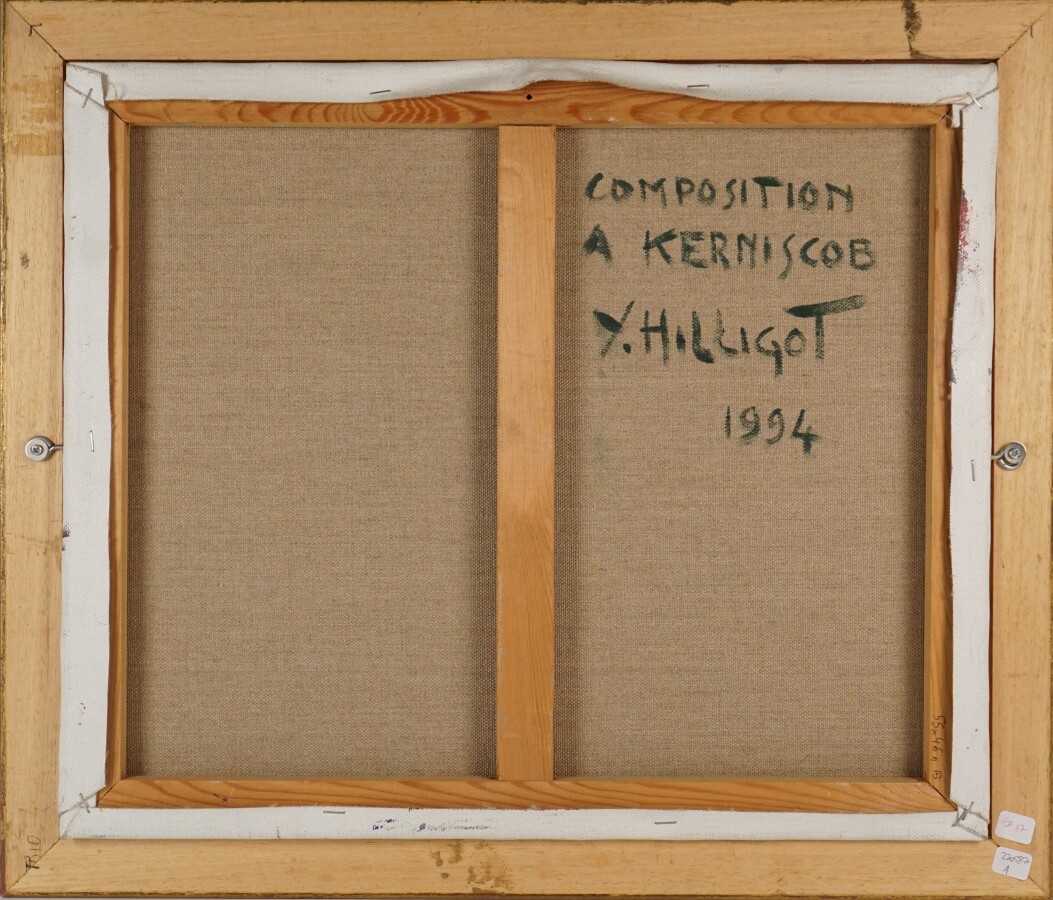 COMPOSITION
A KERNISCOB
Y. HILLIGOT
1994